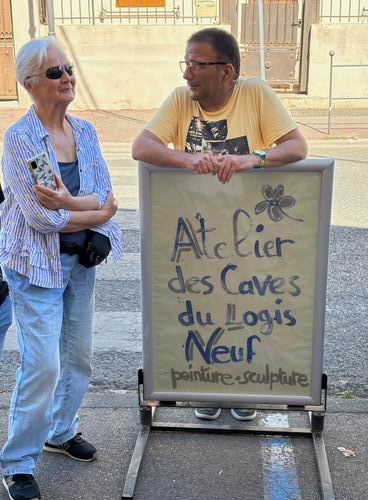 Atelier
des Caves
du Logis
Neuf
peinture-sculpture